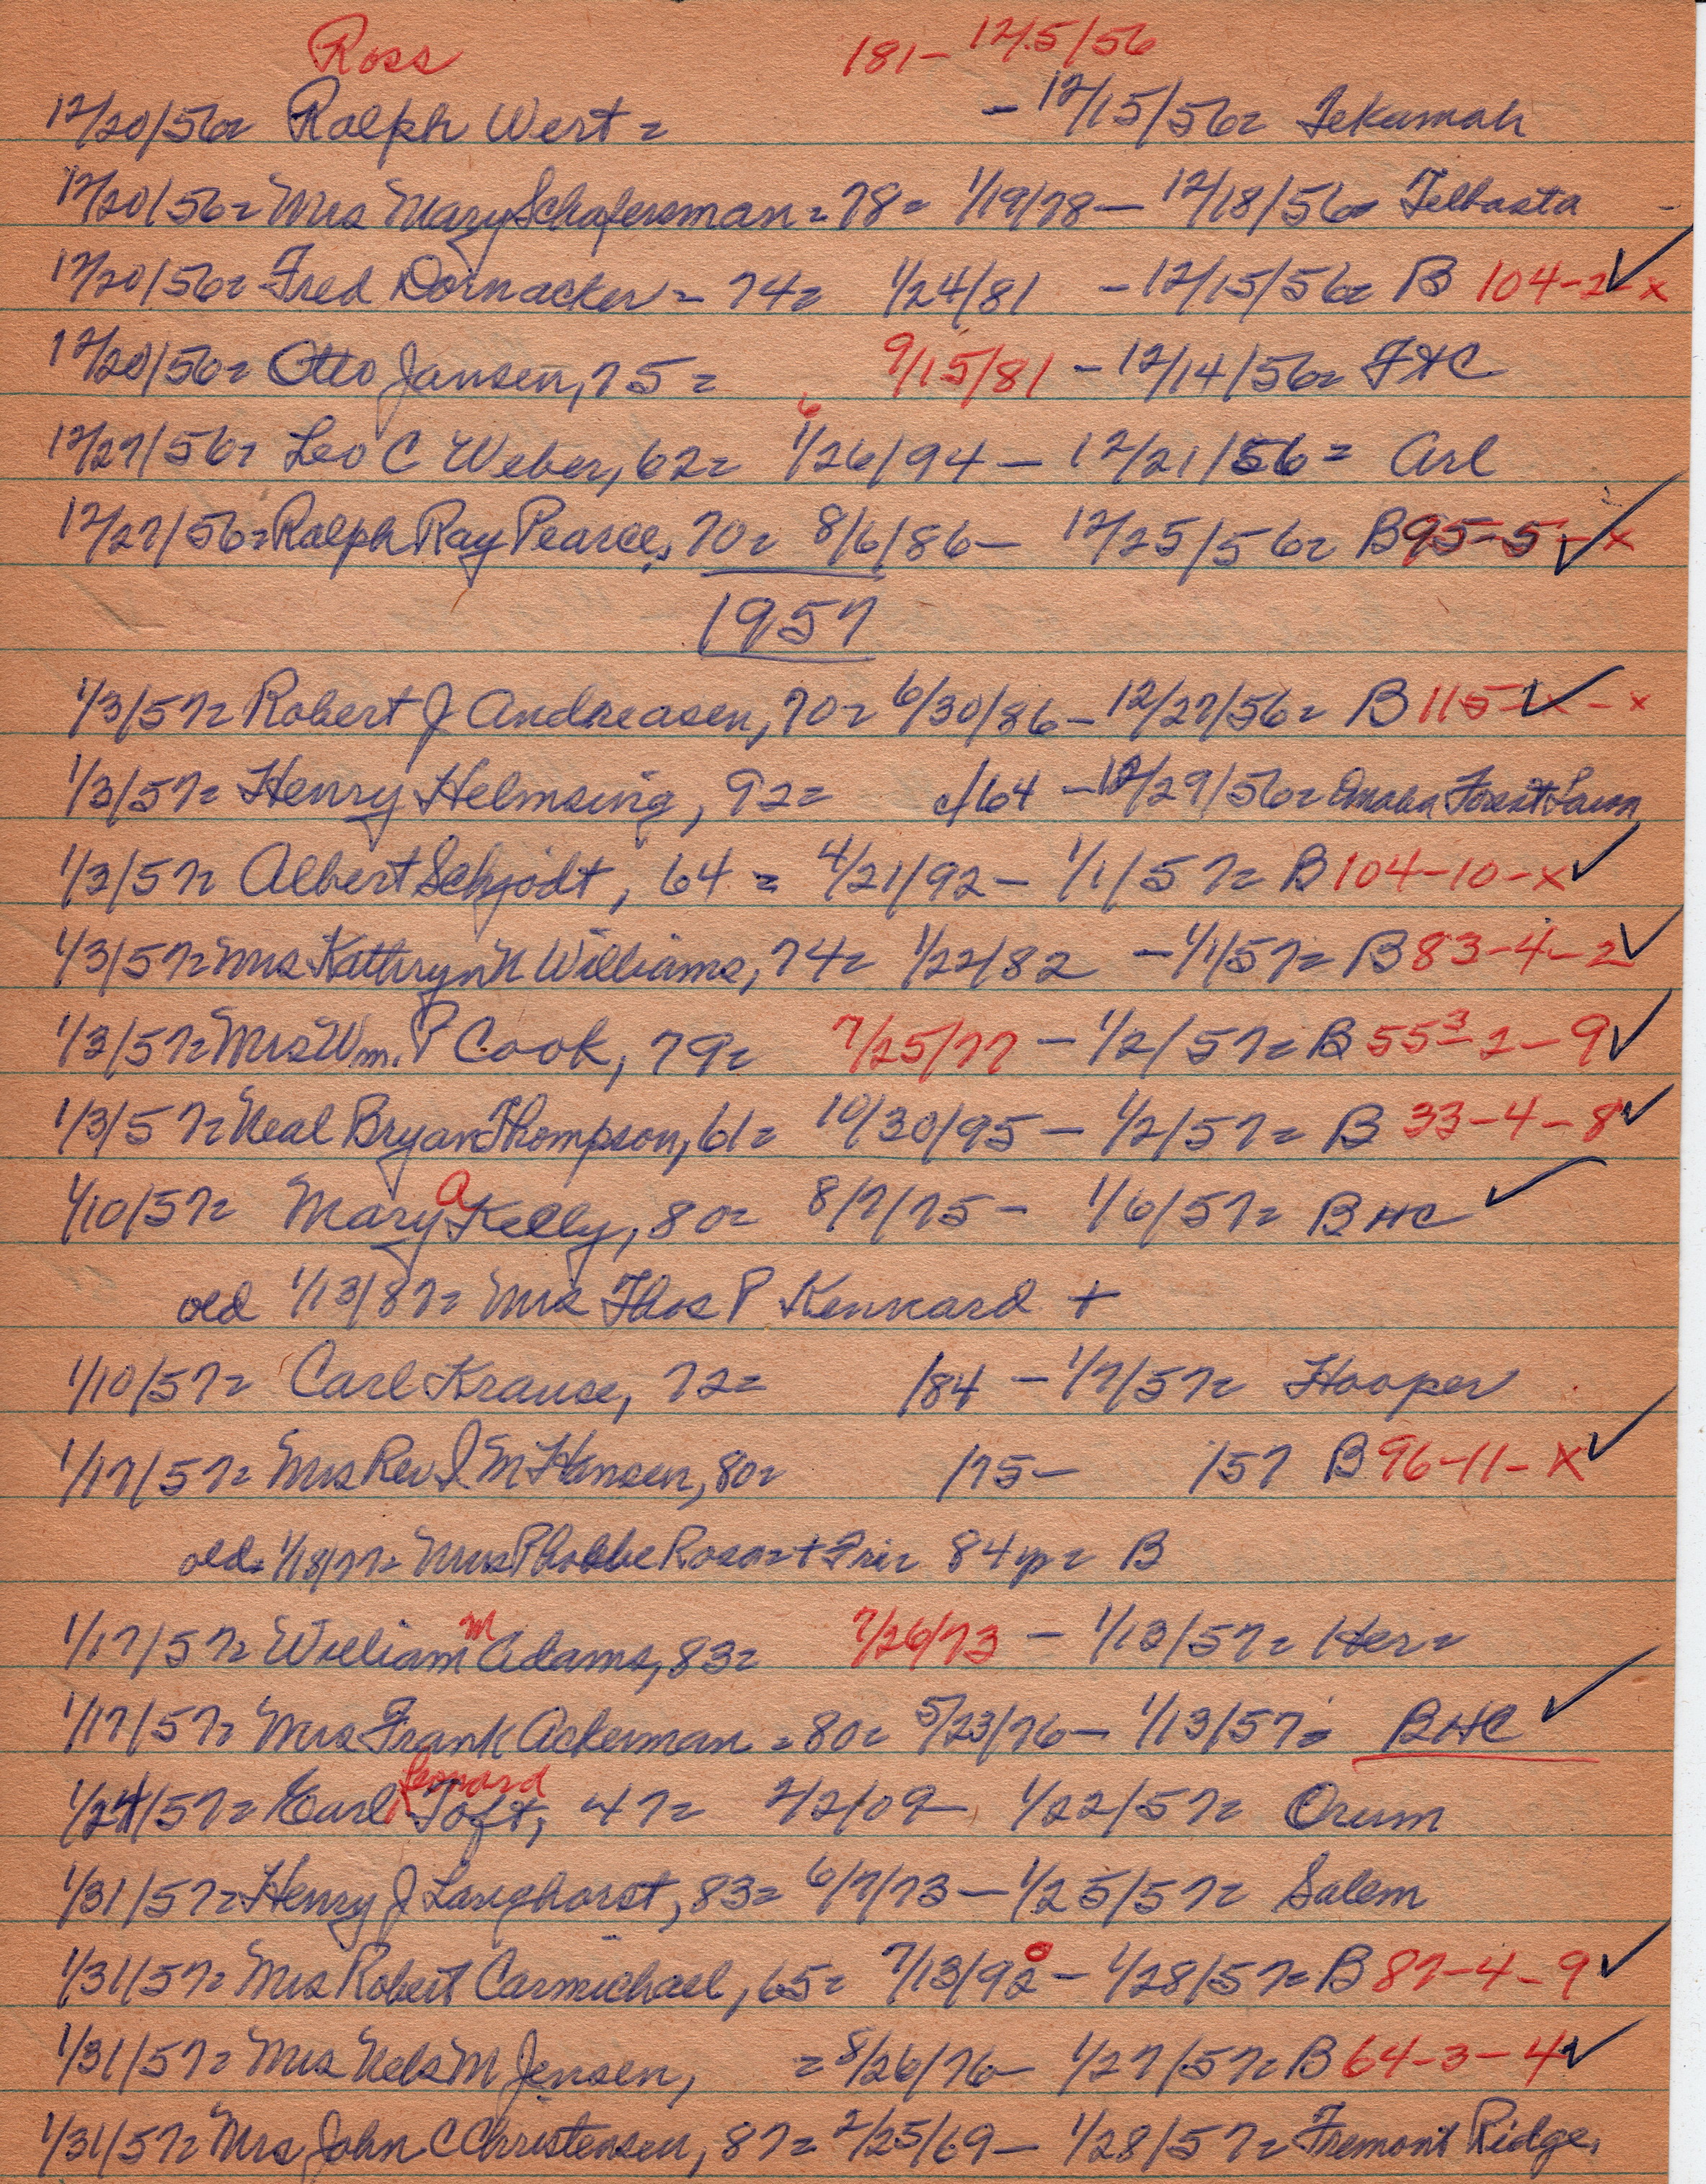 Ross 181- 12/5/56
12/20/56= Ralph Wert = - 12/15/56= Tekamah
12/20/56= Mrs Mary Schafersman = 78= 1/19/78- 12/18/56= Telbasta -
12/20/56= Fred Dornacker - 74= 1/24/81 - 12/15/56= B 104-2-x
12/20/56= Otto Jansen, 75 = 9/15/81 - 12/14/56= FHC
12/27/56= Leo C Weber, 62= 6/26/94 - 12/21/56 = Arl
12/27/56= Ralph Ray Pearce, 70= 8/6/86- 12/25/56= B 95-5-x
1957
1/3/57= Robert J Andreasen, 70= 6/30/86- 12/27/56= B 115- -x
1/3/57= Henry Helmsing, 92= /64 - 12/29/56= Omaha Forest Lawn
1/3/57= Albert Schjodt, 64 = 4/21/92- 1/1/57= B 104-10-x
1/3/57= Mrs Kathryn N Williams, 74= 1/22/82 - 1/1/57= B 83-4-2
1/3/57= Mrs Wm. P Cook, 79= 7/25/77 - 1/2/57= B 55-3-1-9
1/3/57= Neal Bryan Thompson, 61= 10/30/95- 1/2/57= B 33-4-8
1/10/57= Mary A Kelly, 80= 8/7/75- 1/6/57= BHC
old 1/13/87= Mrs Thos P Kennard +
1/10/57= Carl Krause, 72= /84 - 1/7/57= Hooper
1/17/57= Mrs Rev I M Hansen, 80= /75- /57 B 96-11-X
old= 1/18/77= Mrs Phobbe Rosa=+ Fri= 84 yr= B
1/17/57= William M Adams, 83= 7/26/73 - 1/13/57= Her=
1/17/57= Mrs Frank Ackerman = 80= 5/23/76- 1/13/57= BHC
1/24/57= Earl Leonard Toft, 47= 2/2/09- 1/22/57= Orum
1/31/57= Henry J Langhorst, 83= 6/7/73- 1/25/57= Salem
1/31/57= Mrs Robert Carmichael, 65= 7/13/92 0 - 1/28/57= B 87-4-9
1/31/57= Mrs Nels M Jensen, = 8/26/76- 1/27/57= B 64-3-4
1/31/57= Mrs John C Christensen, 87= 2/25/69- 1/28/57= Fremont Ridge.